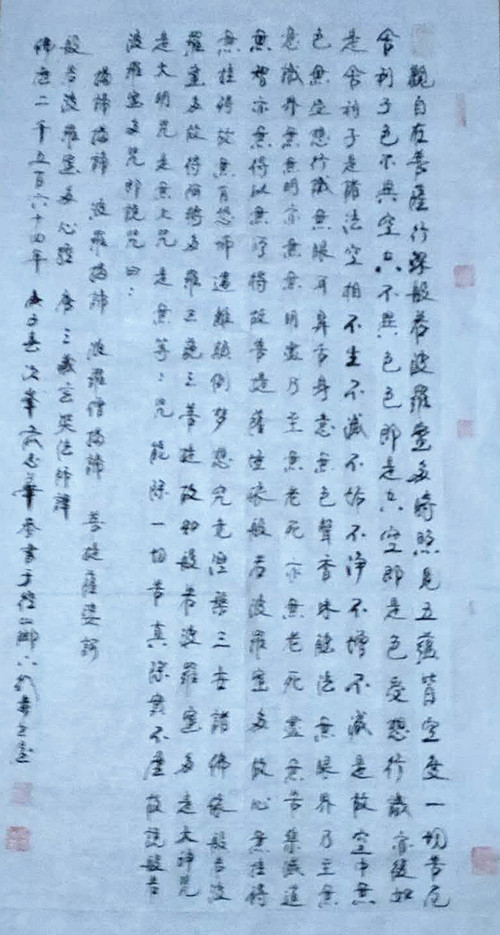 觀自在菩薩行深般若波羅蜜多時照見五蘊皆空度一切苦厄
舍利子色不異空空不異色色即是空空即是色受想行識亦復如
是舍利子是諸法空相不生不滅不垢不淨不增不減是故空中無
色無受想行識無眼耳鼻舌身意無色聲香味觸法無眼界乃至無
意識界無無明亦無無明盡乃至無老死亦無老死盡無苦集滅道
無智亦無得以無所得故菩提薩埵依般若波羅蜜多故心無挂碍
無挂碍故無有恐怖遠離顛倒夢想究竟涅槃三世諸佛依般若波
羅蜜多故得阿耨多羅三藐三菩提故知般若波羅蜜多是大神咒
是大明咒是無上咒是無等々咒能除一切苦真實不虛故說般若
波羅蜜多咒即說咒曰：
揭諦揭諦 波羅揭諦 波羅僧揭諦 菩提薩婆訶
般若波羅蜜多心經 唐三藏玄奘法師譯
佛歷二千五百六十四年 庚子春次